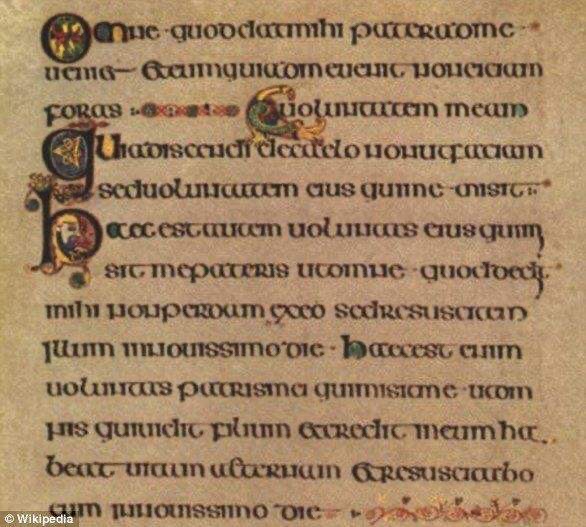 Omne · quod dat mihi pater ad me ·
ueniet et eum qui ad me uenit non eiciam
foras : uoluntatem meam
Quia discendi de caelo non ut faciam
sed uoluntatem eius qui me misit :
Haec est autem uoluntas eius qui mi
sit me pateris ut omne · quod dedit
mihi non perdam ex eo sed resuscitem
illum in nouissimo die · haec est enim
uoluntas patris mei qui misit me · ut om
nis qui uidit filium et credit in eum ha
beat uitam aeternam et resuscitabo
eum in nouissimo die
© Wikipedia